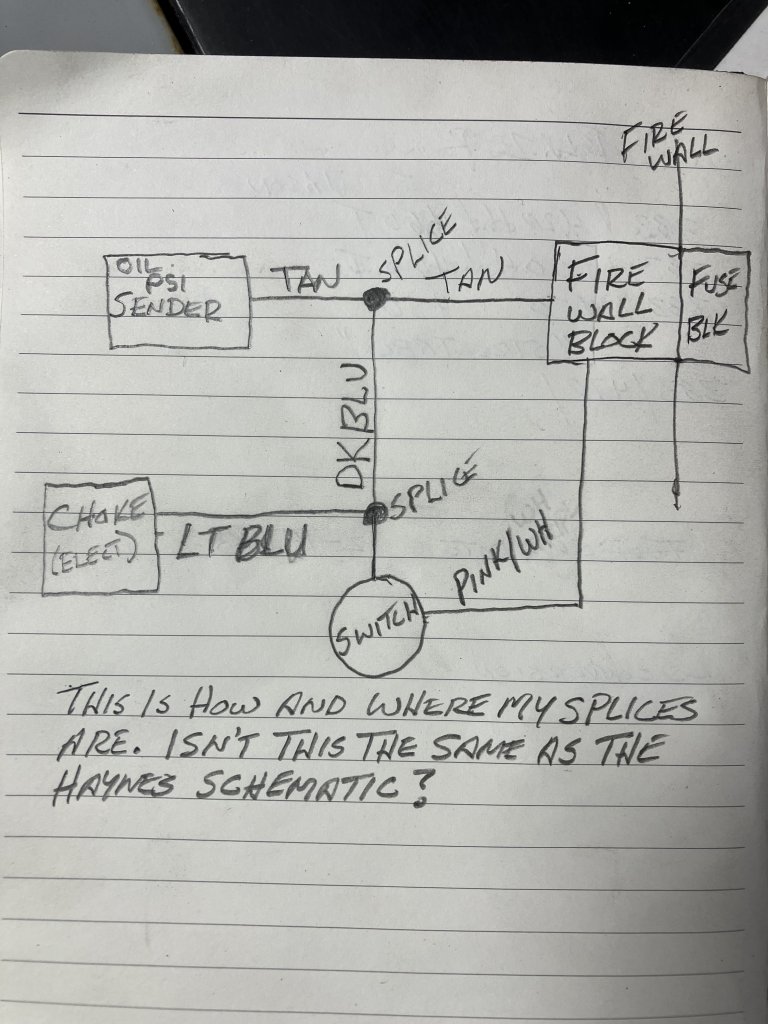 FIRE
WALL
OIL
PSI
SENDER
TAN
SPLICE
TAN
FIRE
WALL
BLOCK
FUSE
BLK
DK BLU
CHOKE
(ELECT)
LT BLU
SPLICE
PINK/WH
SWITCH
THIS IS HOW AND WHERE MY SPLICES
ARE. ISN'T THIS THE SAME AS THE
HAYNES SCHEMATIC?